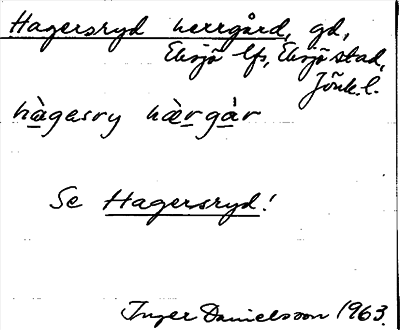 Hagersryd herrgård, gd,
Eksjö lfs, Eksjö stad,
Jönk. l.
hàgasry hæ̀rgàr
Se Hagersryd!
Inger Danielsson 1963.